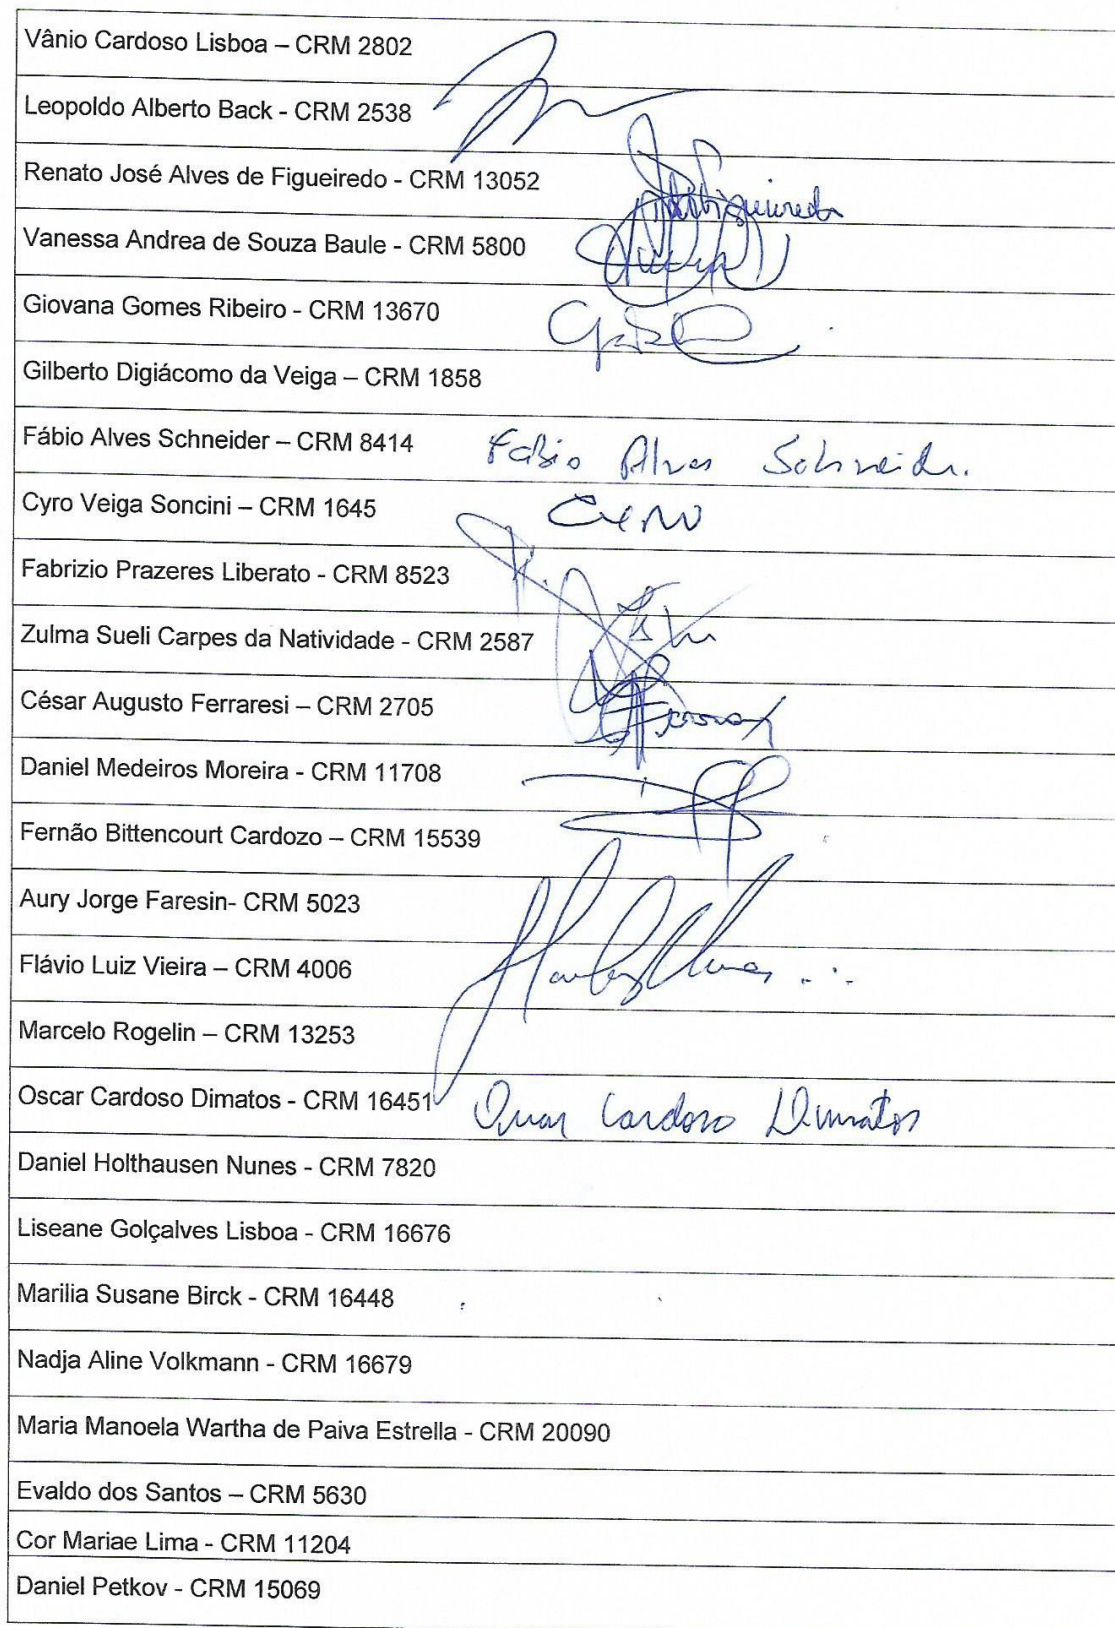 Vânio Cardoso Lisboa – CRM 2802
Leopoldo Alberto Back - CRM 2538
Renato José Alves de Figueiredo - CRM 13052
Figueiredo
Vanessa Andrea de Souza Baule - CRM 5800
Giovana Gomes Ribeiro - CRM 13670
Gilberto Digiácomo da Veiga – CRM 1858
Fábio Alves Schneider – CRM 8414 Fabio Alves Schneider.
Cyro Veiga Soncini – CRM 1645
Fabrizio Prazeres Liberato - CRM 8523
Zulma Sueli Carpes da Natividade - CRM 2587
César Augusto Ferraresi – CRM 2705
Daniel Medeiros Moreira - CRM 11708
Fernão Bittencourt Cardozo – CRM 15539
Aury Jorge Faresin- CRM 5023
Flávio Luiz Vieira – CRM 4006
Marcelo Rogelin – CRM 13253
Oscar Cardoso Dimatos - CRM 16451 Oscar Cardoso Dimatos
Daniel Holthausen Nunes - CRM 7820
Liseane Golçalves Lisboa - CRM 16676
Marilia Susane Birck - CRM 16448
Nadja Aline Volkmann - CRM 16679
Maria Manoela Wartha de Paiva Estrella - CRM 20090
Evaldo dos Santos – CRM 5630
Cor Mariae Lima - CRM 11204
Daniel Petkov - CRM 15069